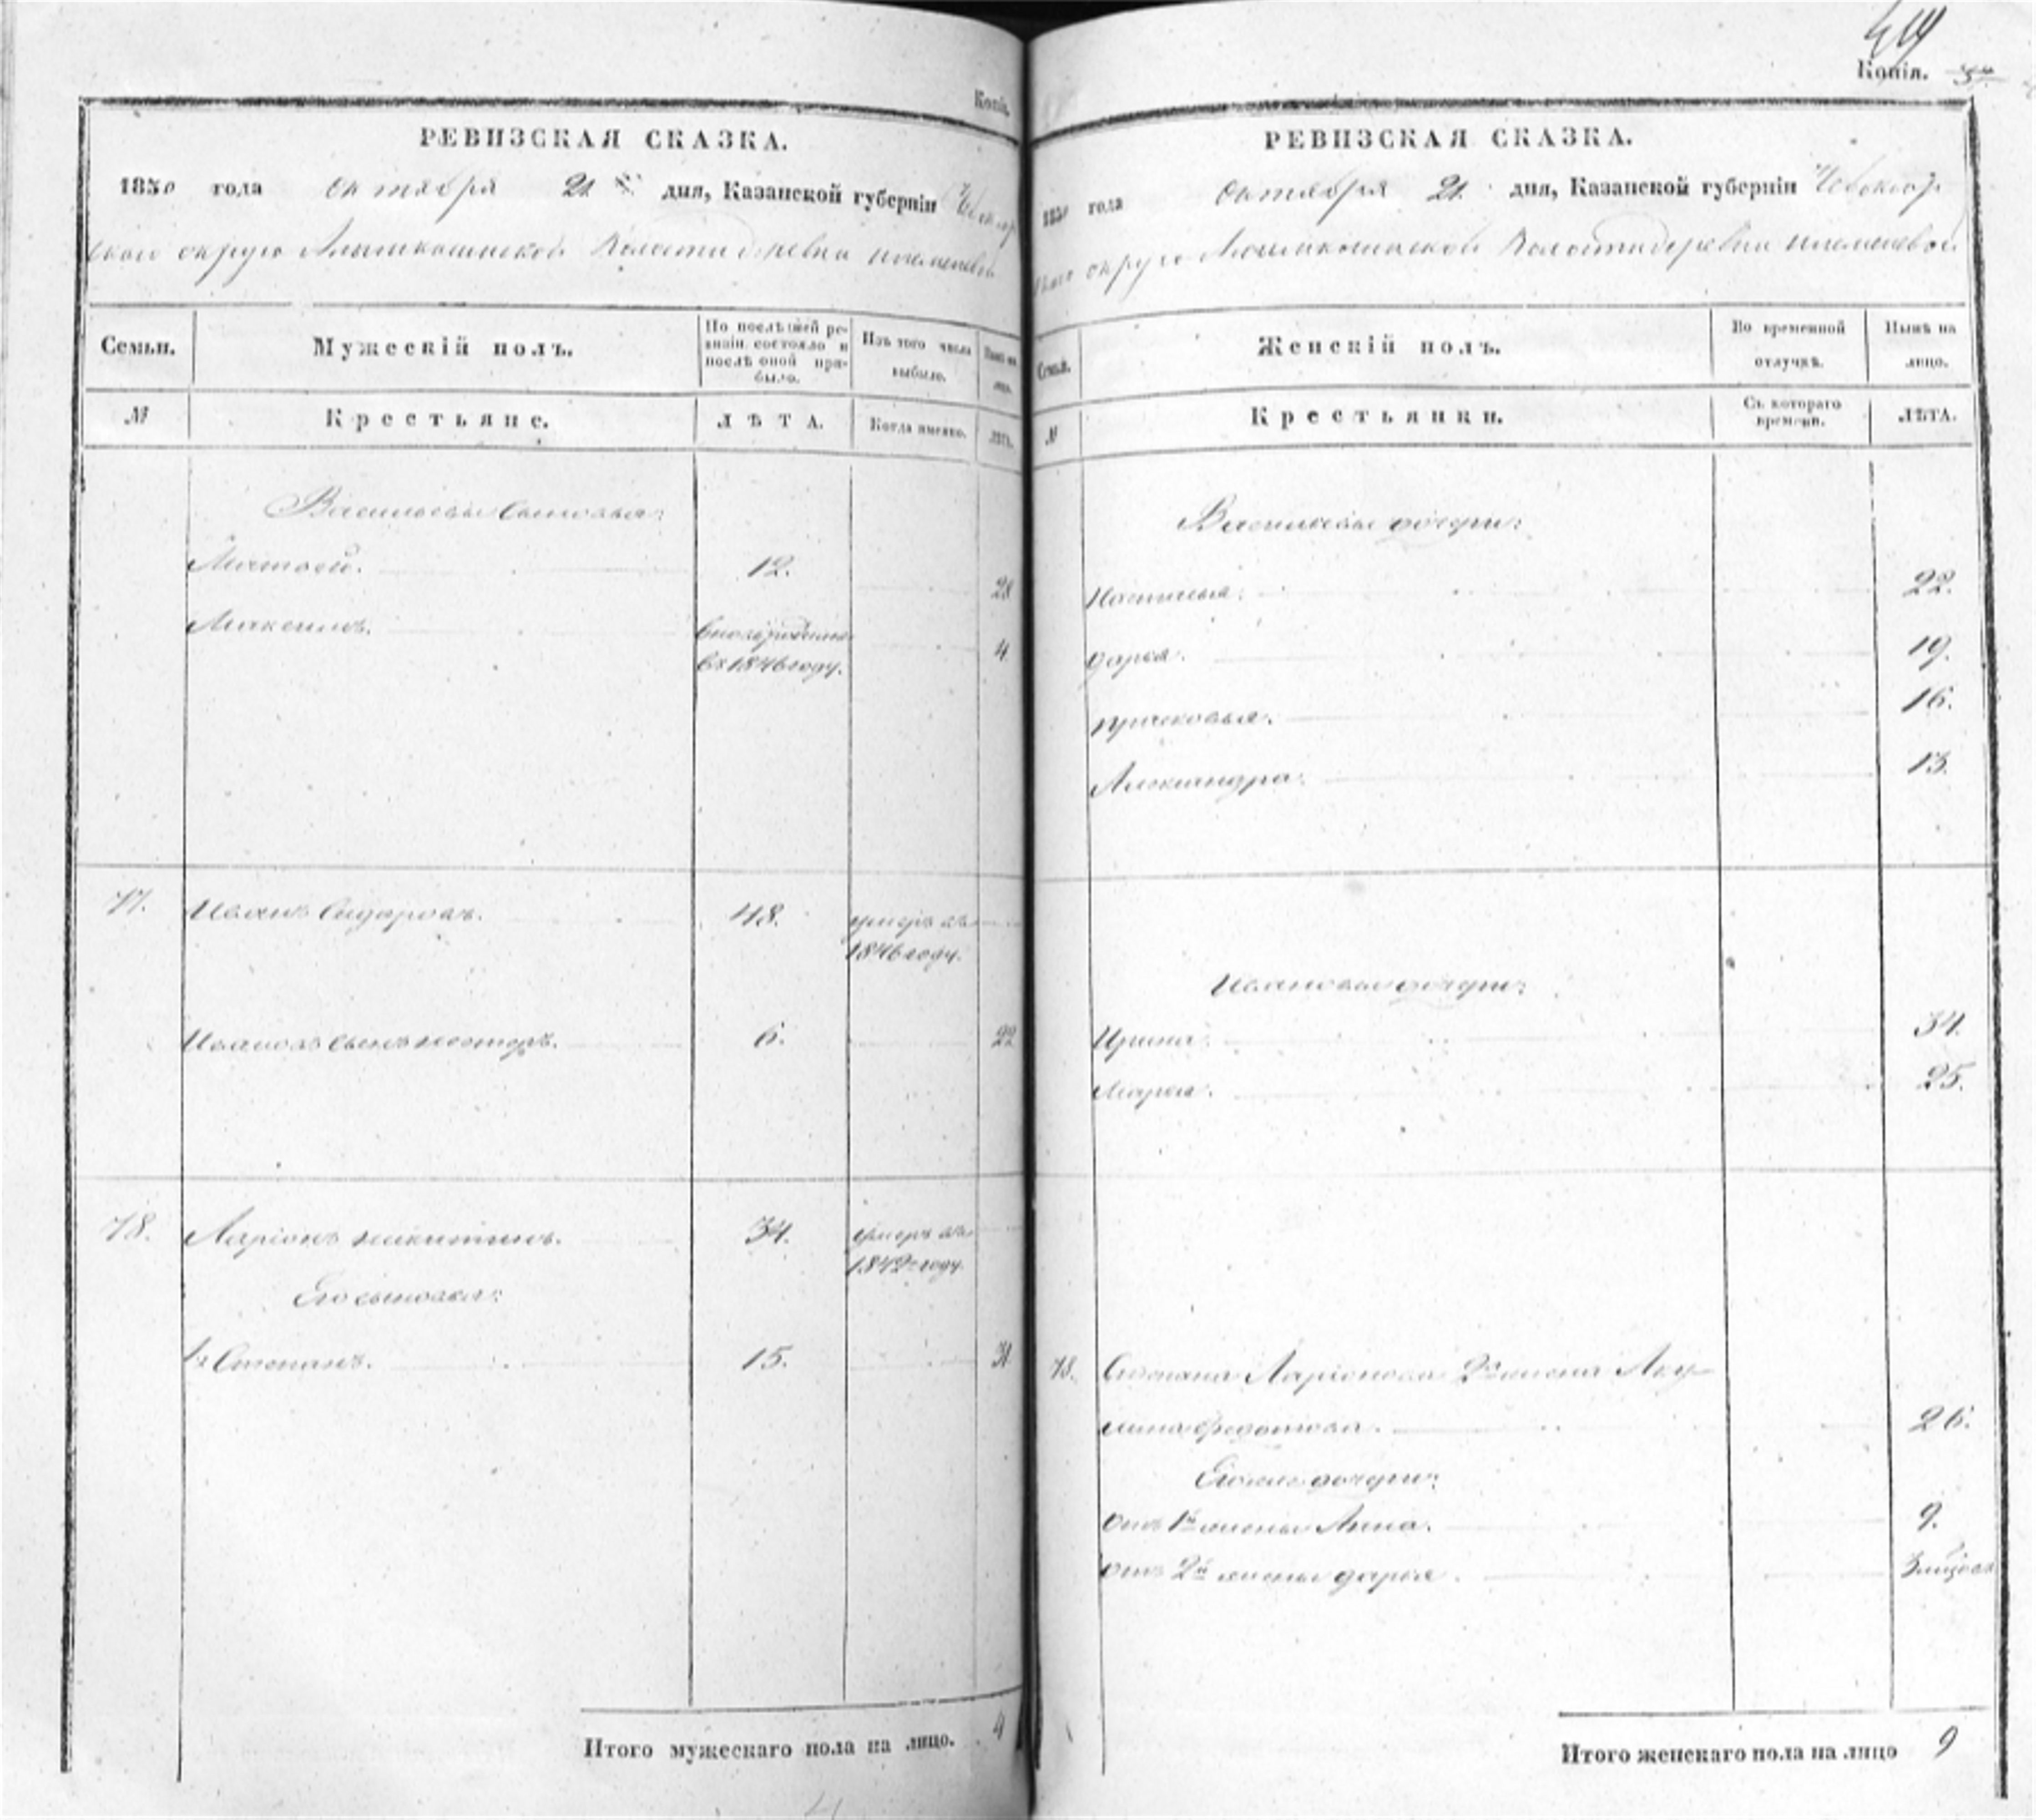 Копія.
РЕВИЗСКАЯ СКАЗКА.
1850 года октября 21 дня, Казанской губерніи
скаго округа волости деревни
Семьи.
Мужескій полъ.
По послѣдней ре-
визіи состояло и
послѣ оной при-
было.
Изъ того числа
выбыло.
Нынѣ на
лицо.
№
Крестьяне.
ЛѢТА.
Когда именно.
ЛѢТА.
Васильевы сыновья:
Матвей. 12. 28
Максимъ. 4
въ 1846 году.
77. Иванъ Сидоровъ. 48. умеръ въ
1846 году.
Ивановъ сынъ Несторъ. 6. 22
78. Ларіонъ Никитинъ. 34. умеръ въ
1842 году.
Его сыновья:
1й Степанъ. 15. 31
Итого мужескаго пола на лицо. 4
Копія.
РЕВИЗСКАЯ СКАЗКА.
1850 года октября 21 дня, Казанской губерніи Чебоксар
скаго округа волости деревни
Семьи.
Женскій полъ.
Во временной
отлучкѣ.
Нынѣ на
лицо.
№
Крестьянки.
Съ котораго
времени.
ЛѢТА.
Васильевы дочери:
Настасья. 22.
Дарья. 19.
Прасковья. 16.
Александра. 13.
Ивановы дочери:
Ирина. 34.
Марья. 25.
78. Степана Ларіонова 2я жена Аку-
лина Федотова. 26.
дочери:
отъ 1й жены Анна. 9.
отъ 2й жены Дарья. 3
Итого женскаго пола на лицо 9